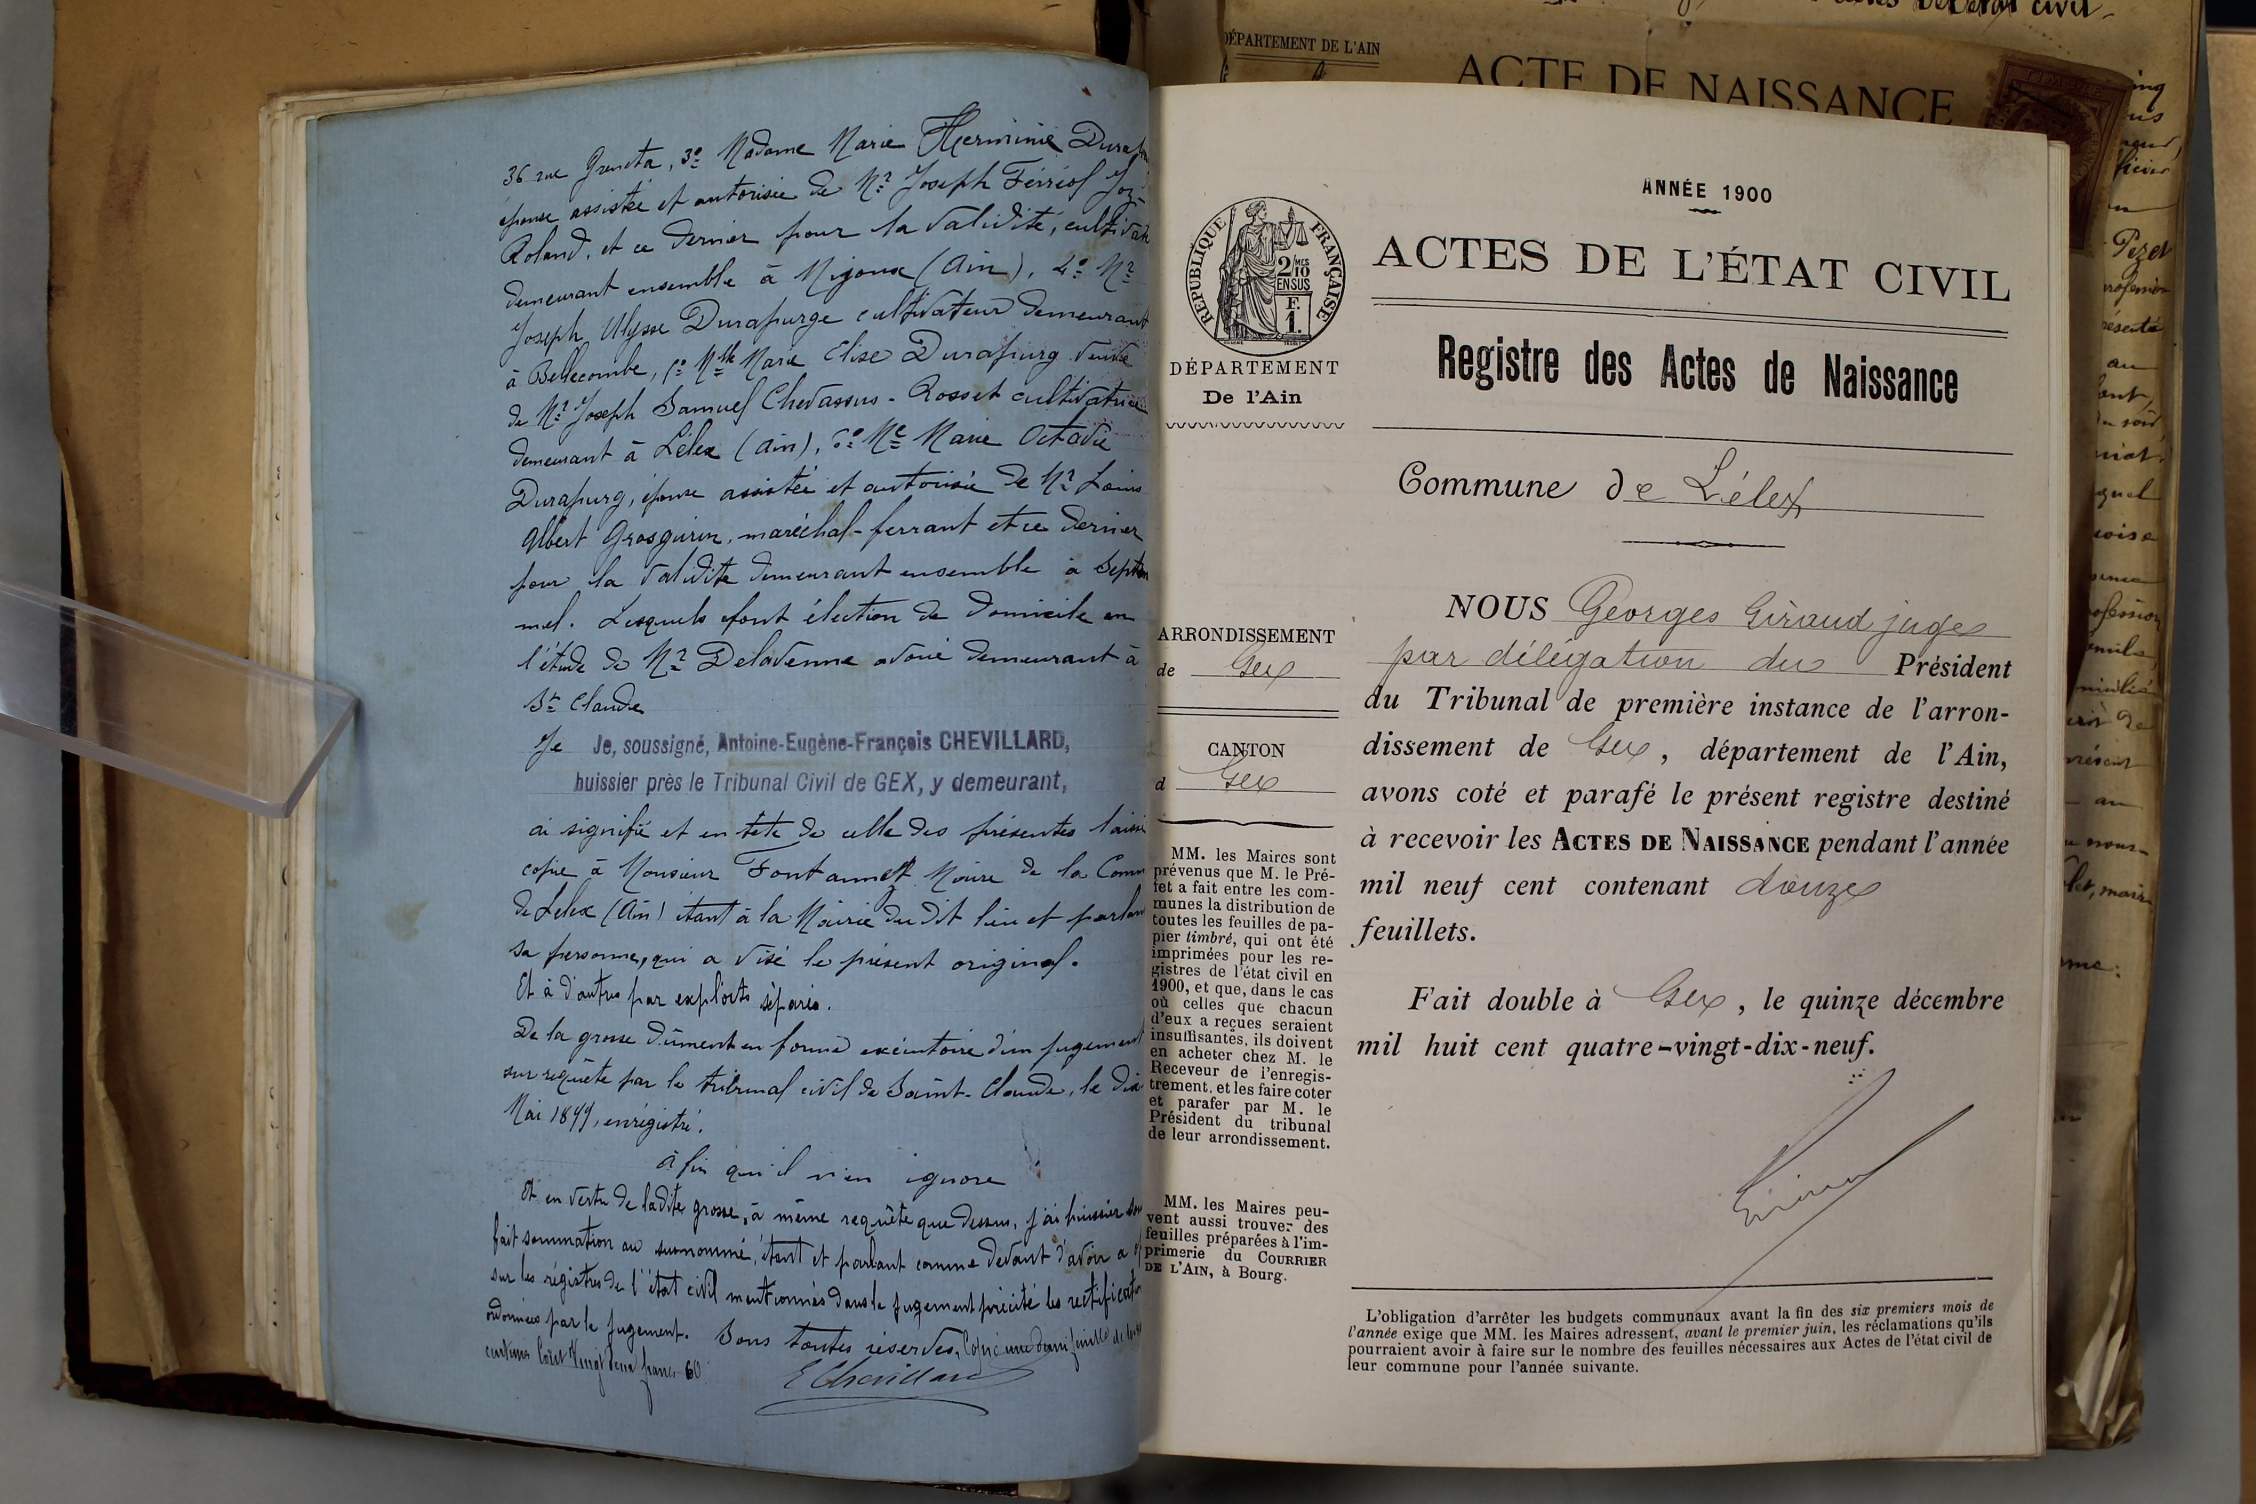 36 rue Greneta, 3º Madame Marie Herminie
épouse assistée et autorisée de Mr Joseph Férréol
Roland, et ce dernier pour la validité,
demeurant ensemble à Mijoux (Ain), 4º Mr
Joseph Ulysse Durafurge cultivateur demeurant
à Bellecombe, Marie Elise Durafurg veuve
de Mr Joseph Samuel Chevassus-Rosset cultivatrice
demeurant à Lélex (Ain), 6º Me Marie Octavie
Durafurg, épouse assistée et autorisée de Mr Louis
Albert Grosgurin, maréchal-ferrant et ce dernier
pour la validité demeurant ensemble à
Lesquels font élection de domicile en
l'étude de Mr Delavenne avoué demeurant à
St Claude
Je Je, soussigné, Antoine-Eugène-François CHEVILLARD,
huissier près le Tribunal Civil de GEX, y demeurant,
ai signifié et en tête de celle des présentes
copie à Monsieur Maire de la
de Lelex (Ain) étant à la Mairie du dit lieu et
sa personne, qui a visé le présent original.
Et à d'autres par exploits séparés.
De la grosse dûment en forme exécutoire d'un jugement
sur requête par le tribunal civil de Saint-Claude, le
Mai 1899, enrégistré.
à fin qu'il n'en ignore
Et en vertu de ladite grosse, à même requête que dessus, j'ai huissier
fait sommation au susnommé, étant et parlant comme devant d'avoir a
sur les régistres de l'état civil mentionnés dans le jugement précité les
ordonnées par le jugement. Sous toutes réserves,
centimes Coût Vingt deux francs 60
EChevillard
DÉPARTEMENT DE L'AIN
ACTE DE NAISSANCE
ANNÉE 1900
RÉPUBLIQUE FRANÇAISE
2/10 MES
EN SUS
F.
1.
DÉPARTEMENT
De l'Ain
ACTES DE L'ÉTAT CIVIL
Registre des Actes de Naissance
Commune de Lélex
ARRONDISSEMENT
de Gex
CANTON
d Gex
MM. les Maires sont
prévenus que M. le Pré-
fet a fait entre les com-
munes la distribution de
toutes les feuilles de pa-
pier timbré, qui ont été
imprimées pour les re-
gistres de l'état civil en
1900, et que, dans le cas
où celles que chacun
d'eux a reçues seraient
insuffisantes, ils doivent
en acheter chez M. le
Receveur de l'enregis-
trement, et les faire coter
et parafer par M. le
Président du tribunal
de leur arrondissement.
MM. les Maires peu-
vent aussi trouver des
feuilles préparées à l'im-
primerie du COURRIER
DE L'AIN, à Bourg.
NOUS Georges Giraud juge
par délégation du Président
du Tribunal de première instance de l'arron-
dissement de Gex, département de l'Ain,
avons coté et parafé le présent registre destiné
à recevoir les ACTES DE NAISSANCE pendant l'année
mil neuf cent contenant douze
feuillets.
Fait double à Gex, le quinze décembre
mil huit cent quatre-vingt-dix-neuf.
L'obligation d'arrêter les budgets communaux avant la fin des six premiers mois de
l'année exige que MM. les Maires adressent, avant le premier juin, les réclamations qu'ils
pourraient avoir à faire sur le nombre des feuilles nécessaires aux Actes de l'état civil de
leur commune pour l'année suivante.